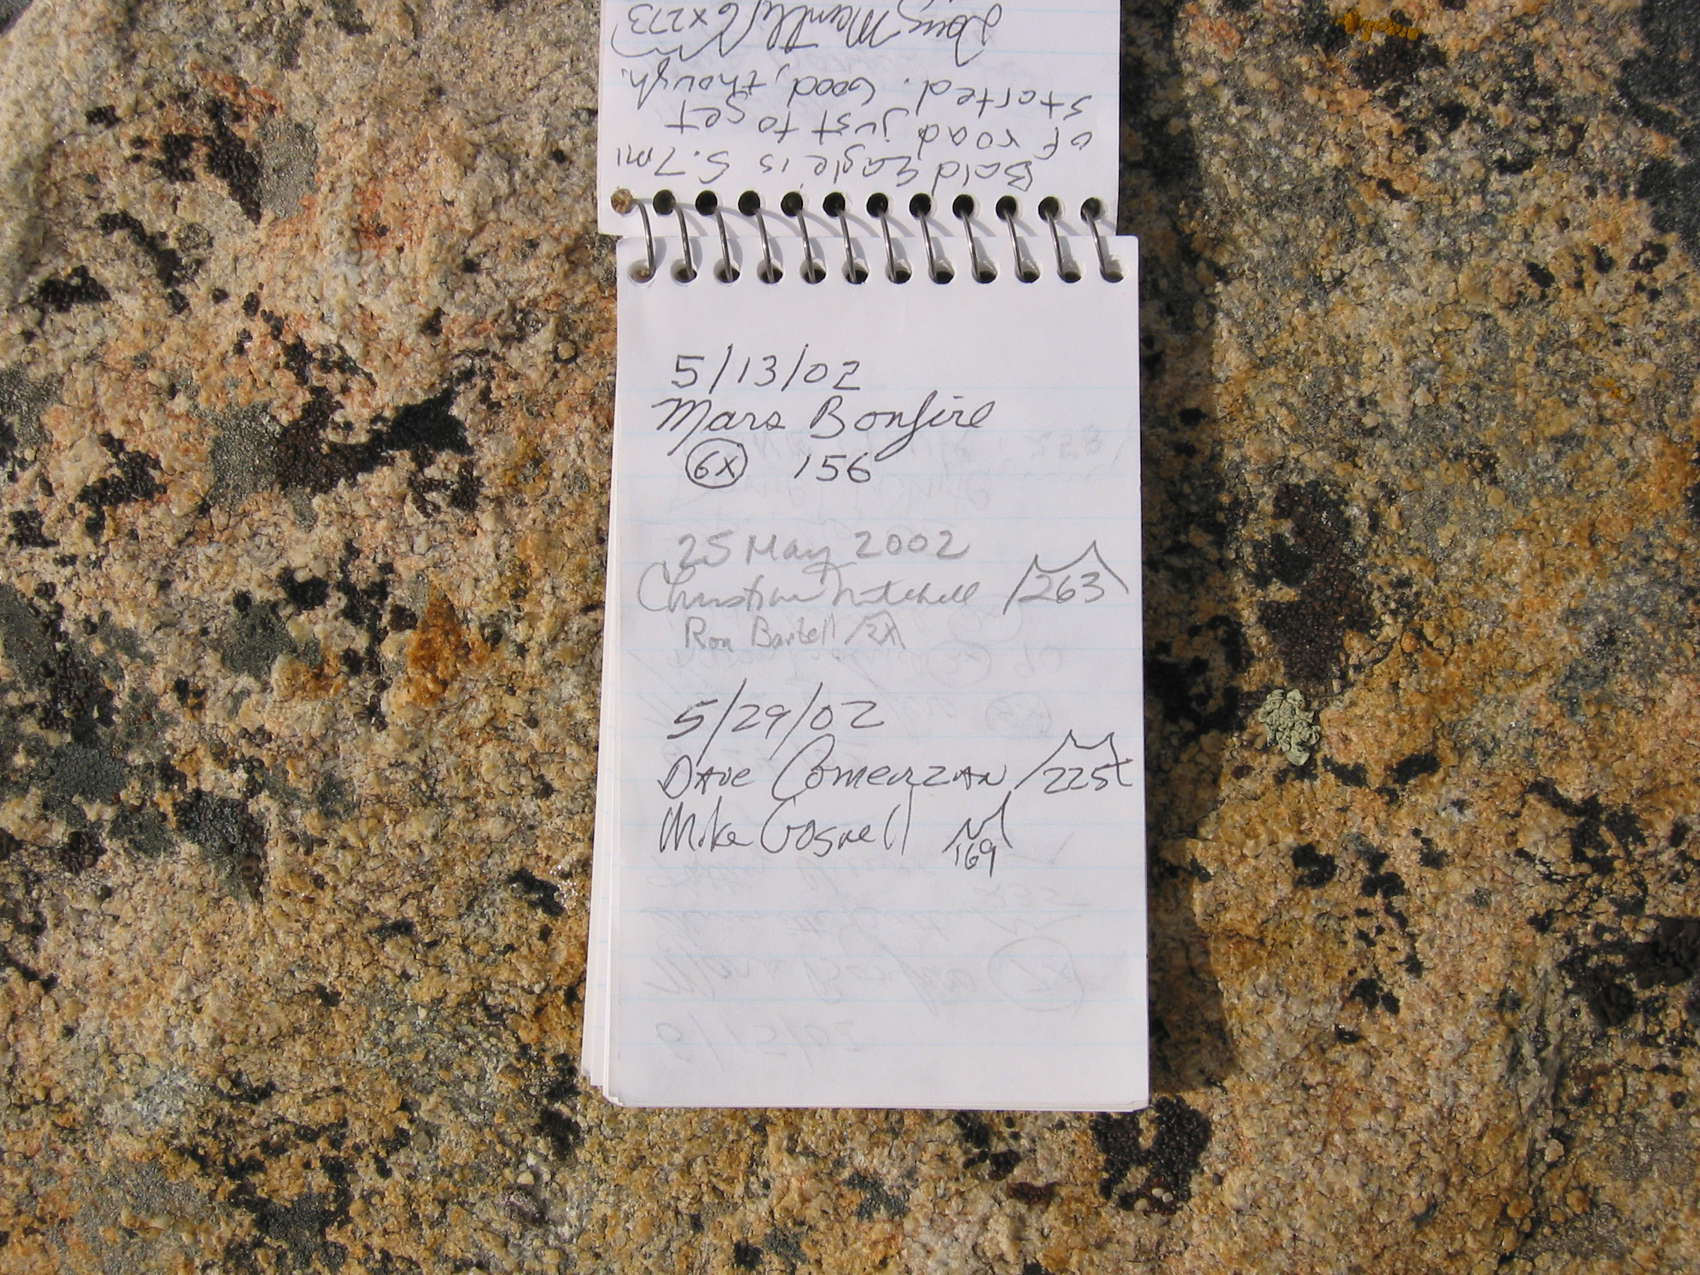 Bald Eagle is 5.7mi
of road just to get
started. Good, though.
Doug Mantle 6x273
5/13/02
Mars Bonfire
6x 156
25 May 2002
Christine Mitchell 263
Ron Bartell 2x
5/29/02
Dave Comerzan 225t
Mike Gosnell 169